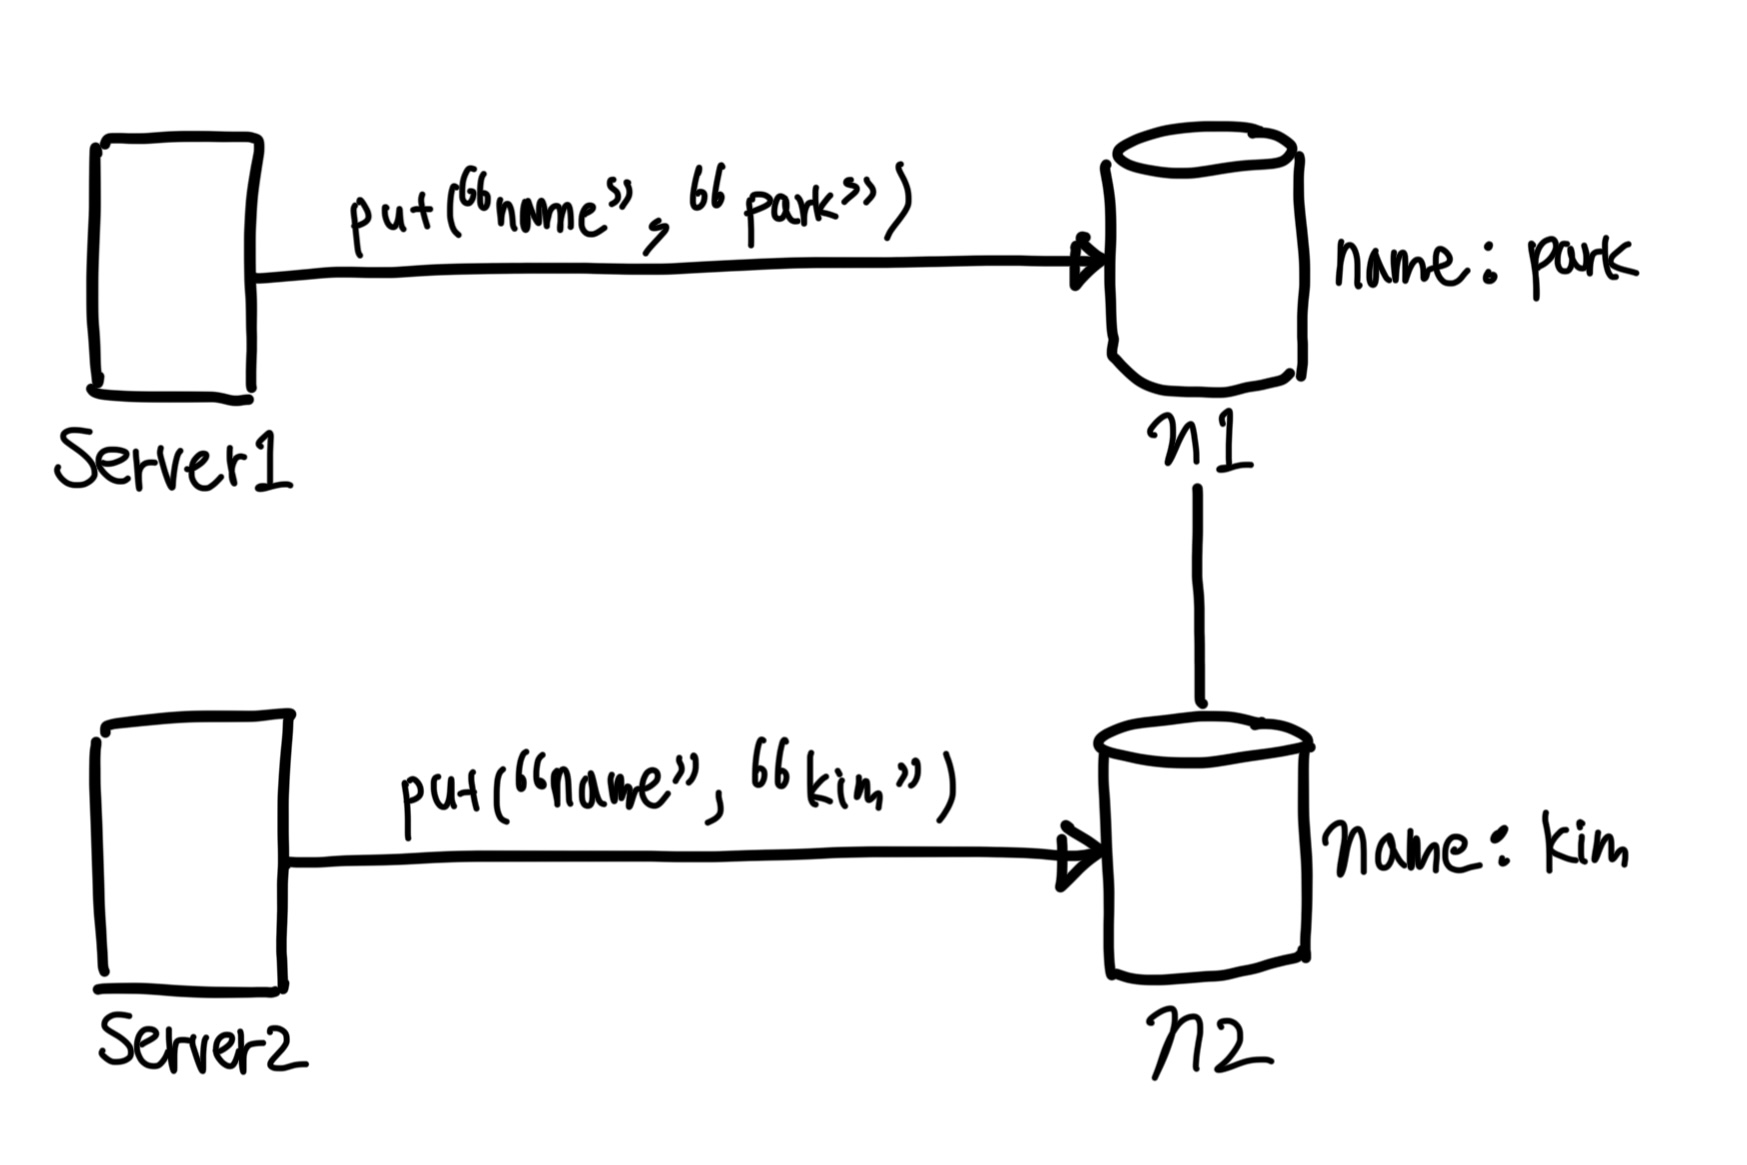 put("name", "park")
name: park
Server1
n1
put("name", "kim")
name: kim
Server2
n2